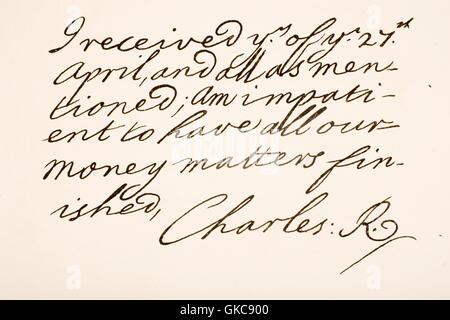 I received y.rs of y.r 27.th
April, and all as men-
tioned; am impati-
ent to have all our
money matters fin-
ished,
Charles: R.
alamy
www.alamy.com - GKC900